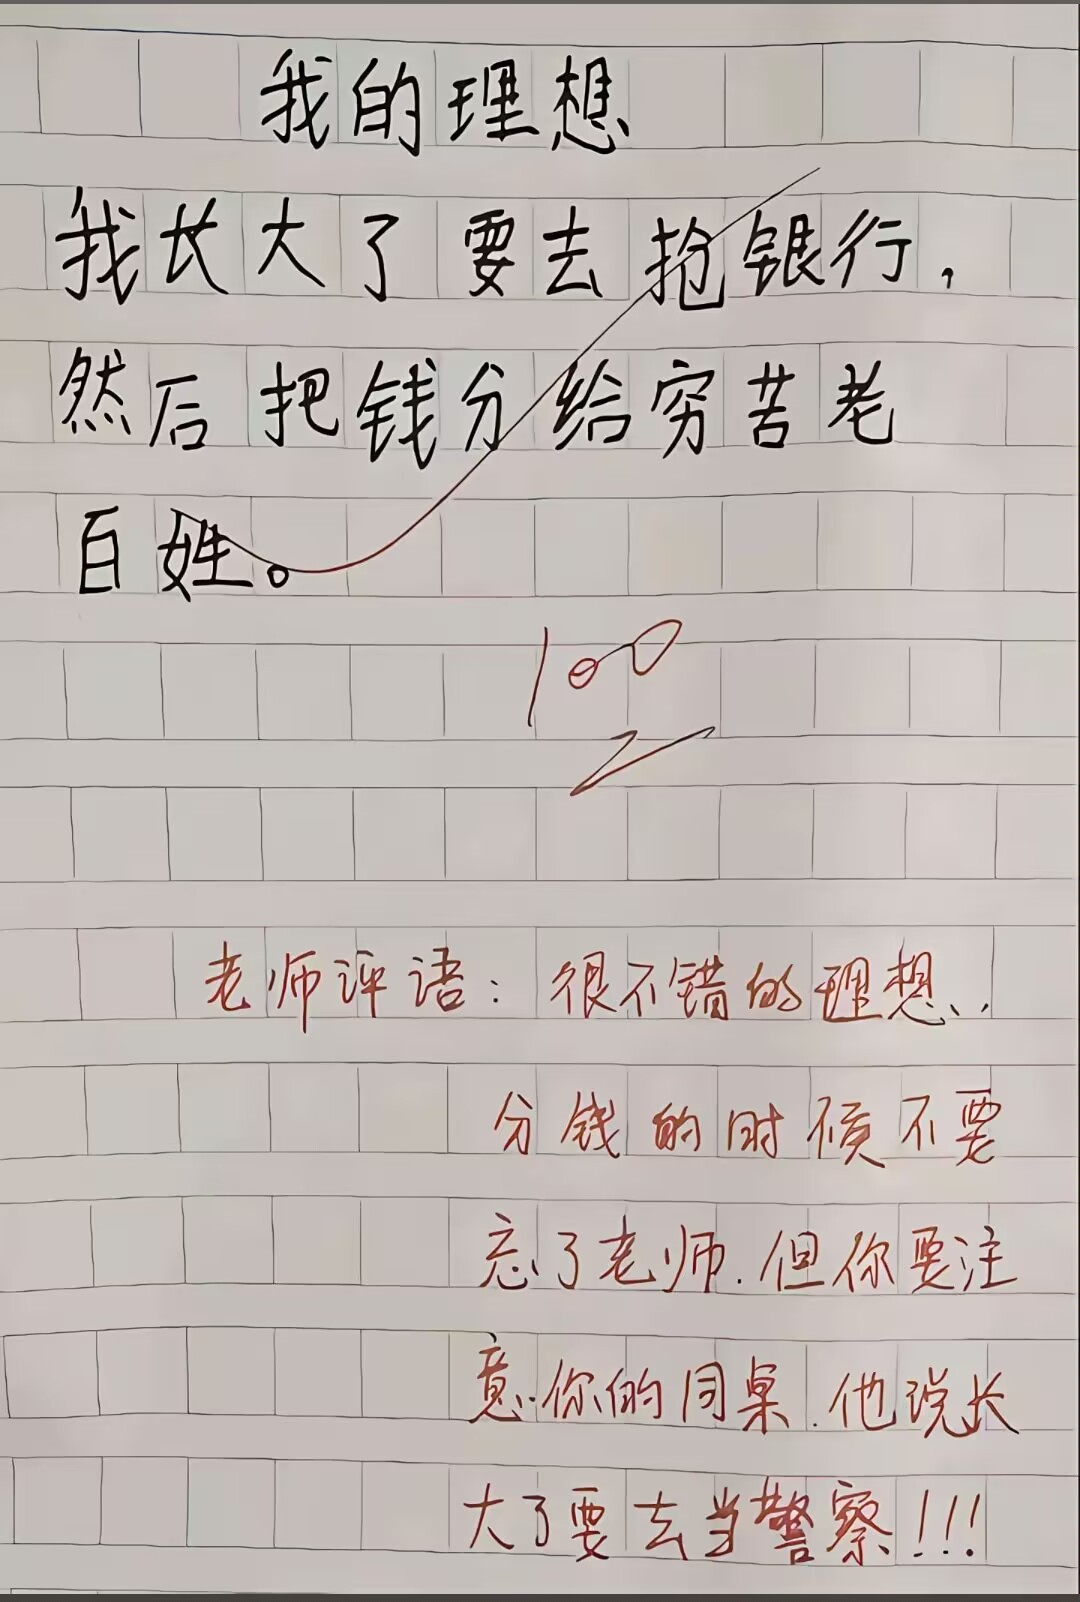 我的理想
我长大了要去抢银行，
然后把钱分给穷苦老
百姓。
100
老师评语：很不错的理想..
分钱的时候不要
忘了老师.但你要注
意.你的同桌.他说长
大了要去当警察!!!